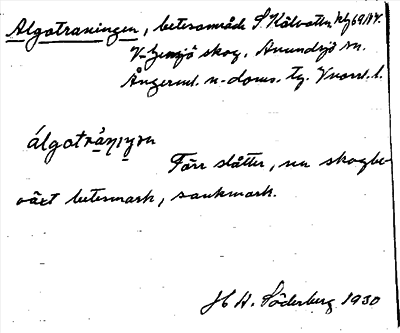 Algotraningen, betesområde S. Kälvatten, kbl 69 NV.
V. Gensjö skog, Anundsjö sn.
Ångerml. n. doms. tg. Vnorrl. l.
Förr slåtter, nu skogbe-
växt betesmark, sankmark.
H W. Söderberg 1930